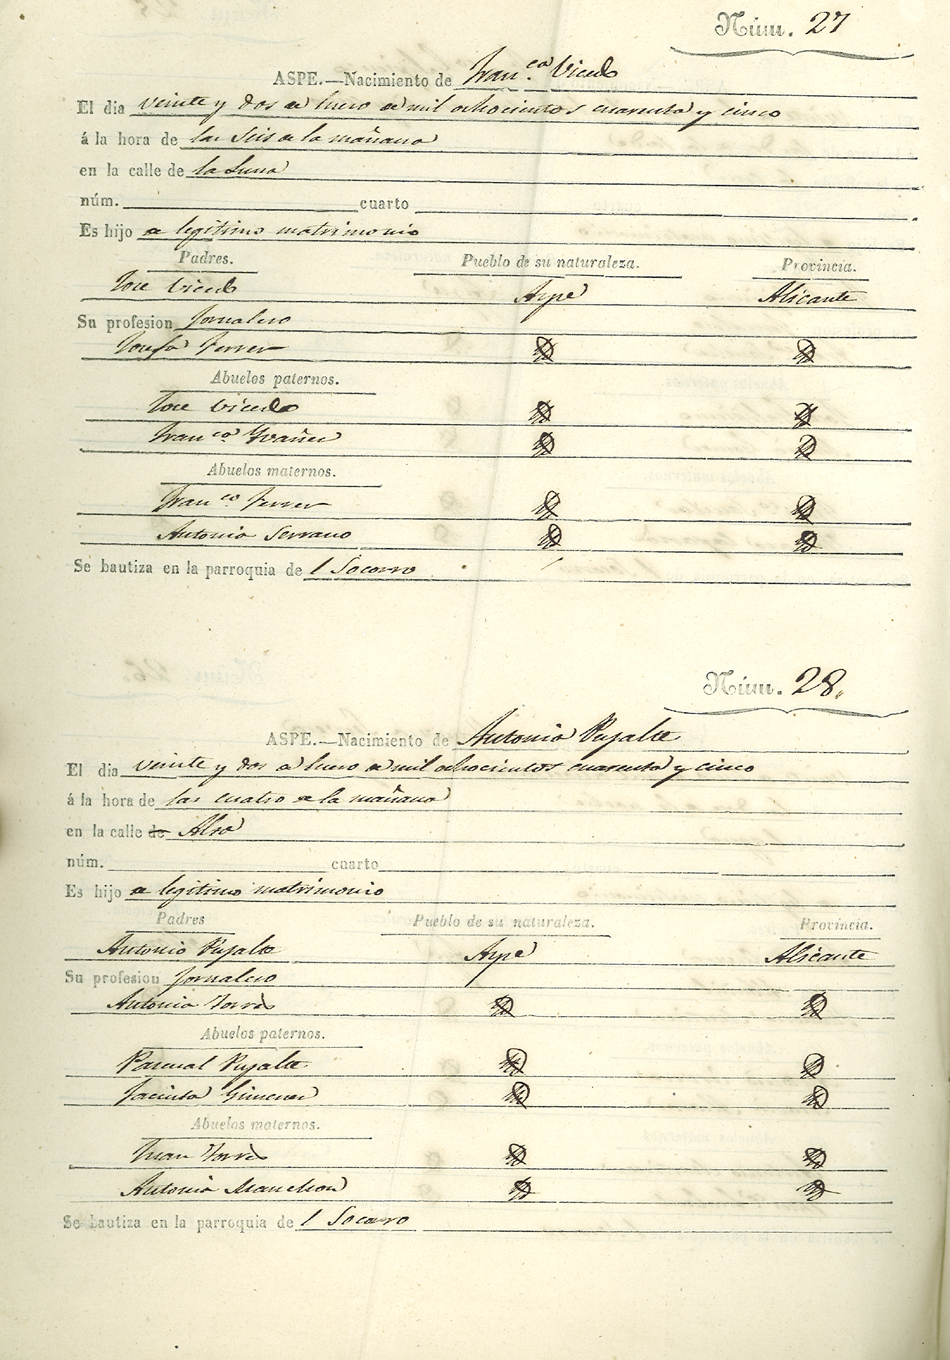 Núm. 27
ASPE.—Nacimiento de Fran.ca Vicedo
El dia veinte y dos de Enero de mil ochocientos cuarenta y cinco
á la hora de las seis de la mañana
en la calle de la Luna
núm. cuarto
Es hijo de legitimo matrimonio
Padres. Pueblo de su naturaleza. Provincia.
Jose Vicedo Aspe Alicante
Su profesion Jornalero
Josefa Ferrer
Abuelos paternos.
Jose Vicedo
Fran.ca Yvañes
Abuelos maternos.
Fran.co Ferrer
Antonia Serrano
Se bautiza en la parroquia del Socorro
Núm. 28.
ASPE.—Nacimiento de Antonio Pujalte
El dia veinte y dos de Enero de mil ochocientos cuarenta y cinco
á la hora de las cuatro de la mañana
en la calle de
núm. cuarto
Es hijo de legitimo matrimonio
Padres Pueblo de su naturaleza. Provincia.
Antonio Pujalte Aspe Alicante
Su profesion Jornalero
Antonia Torres
Abuelos paternos.
Pascual Pujalte
Jacinta Gimenez
Abuelos maternos.
Juan Torres
Antonia Manchon
Se bautiza en la parroquia del Socorro